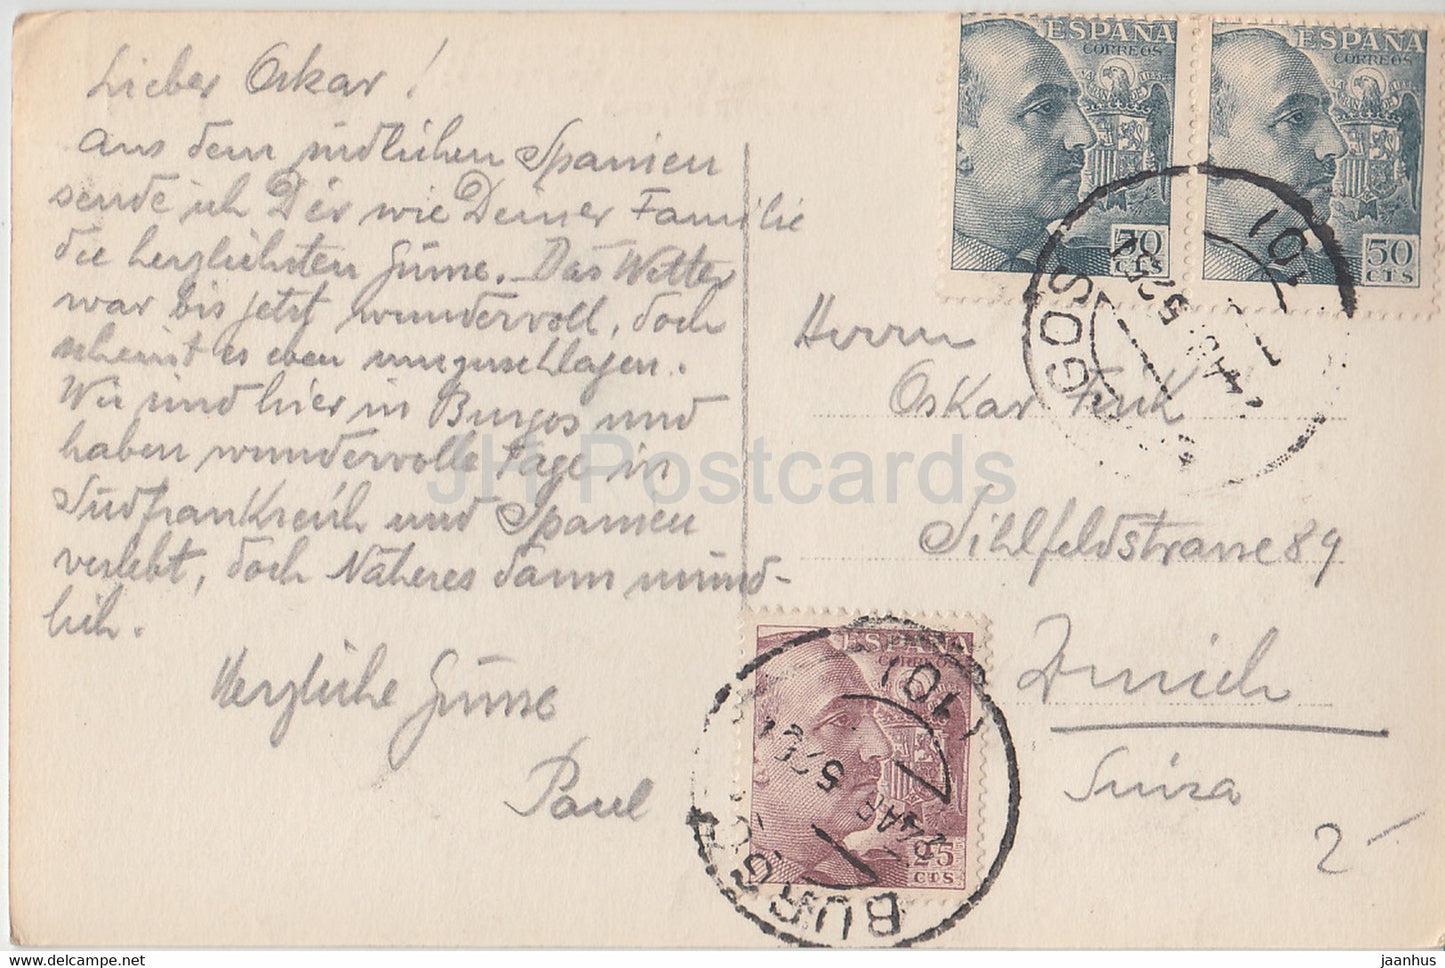 Lieber Oskar!
Aus dem südlichen Spanien
sende ich Dir wie Deiner Familie
die herzlichsten Grüsse. Das Wetter
war bis jetzt wundervoll, doch
scheint es eben umzuschlagen.
Wir sind hier in Burgos und
haben wundervolle Tage in
Südfrankreich und Spanien
verlebt, doch Näheres dann münd-
lich.
Herzliche Grüsse
Paul
ESPAÑA
CORREOS
50
CTS
ESPAÑA
CORREOS
50
CTS
GOS
(10)
Herrn
Oskar
Sihlfeldstrasse 89
Zürich
Suiza
2-
ESPAÑA
CORREOS
25
CTS
BURGOS
(10)
JH Postcards
www.delcampe.net
jaanhus